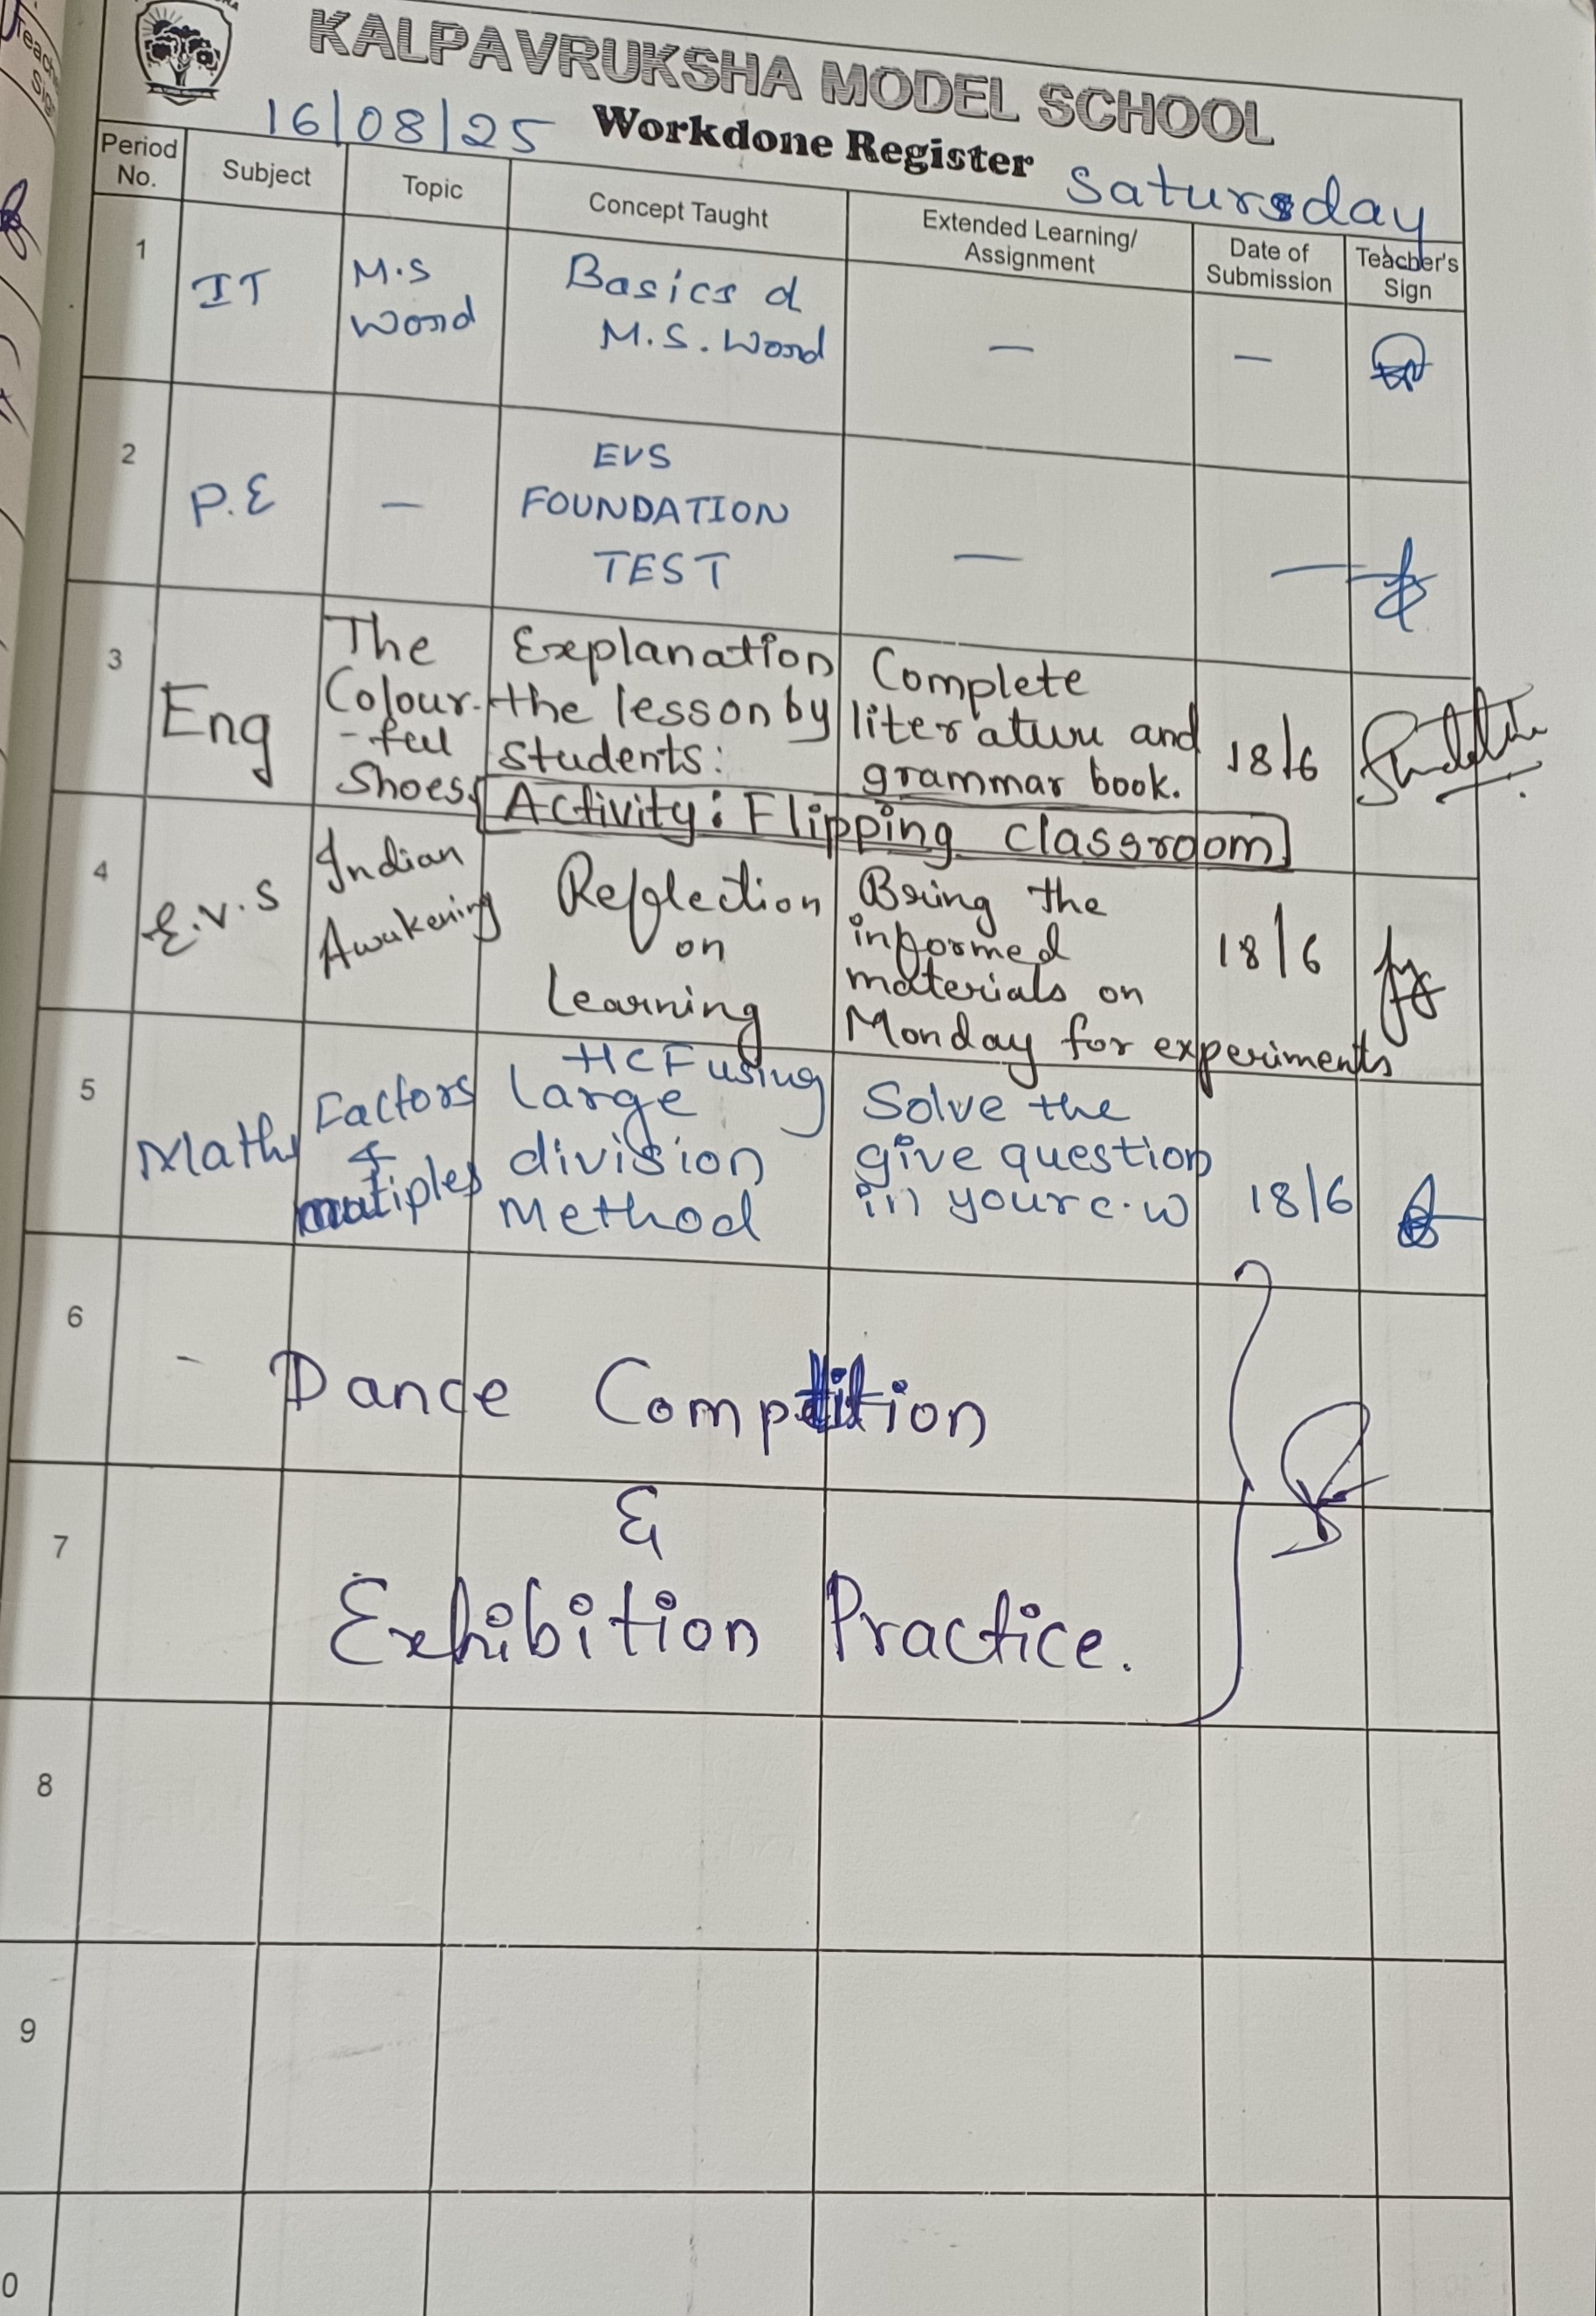 KALPAVRUKSHA MODEL SCHOOL
16/08/25 Workdone Register Saturday
Period No.
Subject
Topic
Concept Taught
Extended Learning/
Assignment
Date of
Submission
Teacher's
Sign
1
IT
M.S
Word
Basics of
M.S. Word
—
—
2
P.E
—
EVS
FOUNDATION
TEST
—
—
3
Eng
The
Colour-
-ful
Shoes.
Explanation
the lesson by
students:
Complete
literature and
grammar book.
18/6
Activity: Flipping classroom
4
E.V.S
Indian
Awakening
Reflection
on
Learning
Bring the
informed
materials on
Monday for experiments
18/6
5
Maths
Factors
&
mutiples
HCF using
large
division
Method
Solve the
give question
in your c.w
18/6
6
- Dance Comptition
7
&
Exhibition Practice.
8
9
0
Teach
Sig